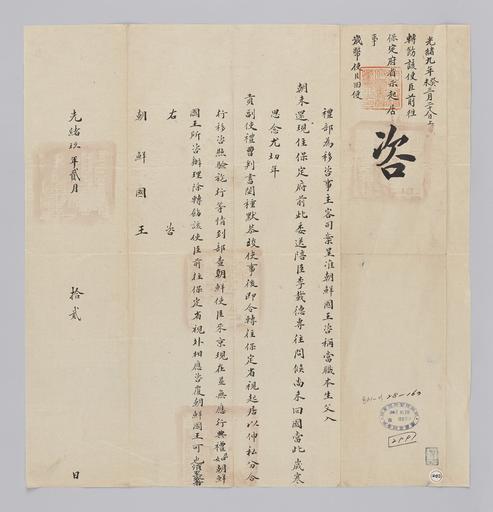 光緒九年癸未三月二八日
轉飭該使臣前往
保定府省視起居
事
歲幣使回便
咨
禮部為移咨事主客司案呈准朝鮮國王咨稱當職本生父入
朝未還現住保定府前此委送陪臣李載德專往問候尚未回國當此歲寒
思念尤切年
貢副使禮曹判書閔種默恭竣使事後即令轉往保定省視起居以伸私分合
行移咨照驗施行等情到部查朝鮮使臣來京現在並無應行典禮如朝鮮
國王所咨辦理除轉飭該使臣前往保定省視外相應咨覆朝鮮國王可也
右咨
朝鮮國王
光緒玖年貳月拾貳日
28-163
2981